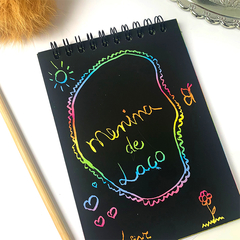 Menina
de
Laço